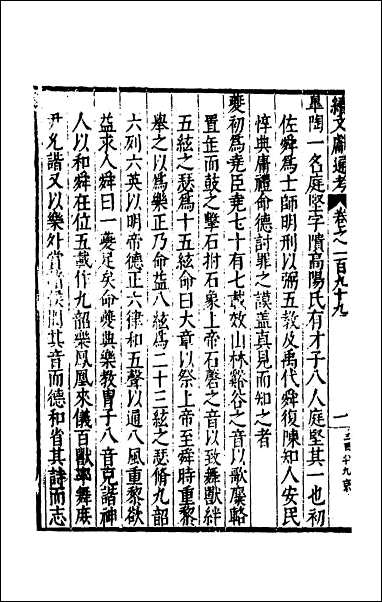 續文獻通考 卷之一百九十九 一
臯陶一名庭堅字隤高陽氏有才子八人庭堅其一也初
佐舜爲士師明刑以弼五教及禹代舜復陳知人安民
惇典庸禮命德討罪之謨蓋真見而知之者
夔初爲堯臣堯七十有七載效山林谿谷之音以歌麋䩣
置缶而鼓之擊石拊石象上帝石磬之音以致舞獸絆
五絃之瑟爲十五絃命曰大章以祭上帝至舜時重黎
舉之以爲樂正乃命益八絃爲二十三絃之瑟脩九韶
六列六英以明帝德正六律和五聲以通八風重黎欲
益求人舜曰一夔足矣命夔典樂教胄子八音克諧神
人以和舜在位五載作九韶樂鳳凰來儀百獸率舞庶
尹允諧又以樂外賞諸侯聞其音而德和省其詩而志